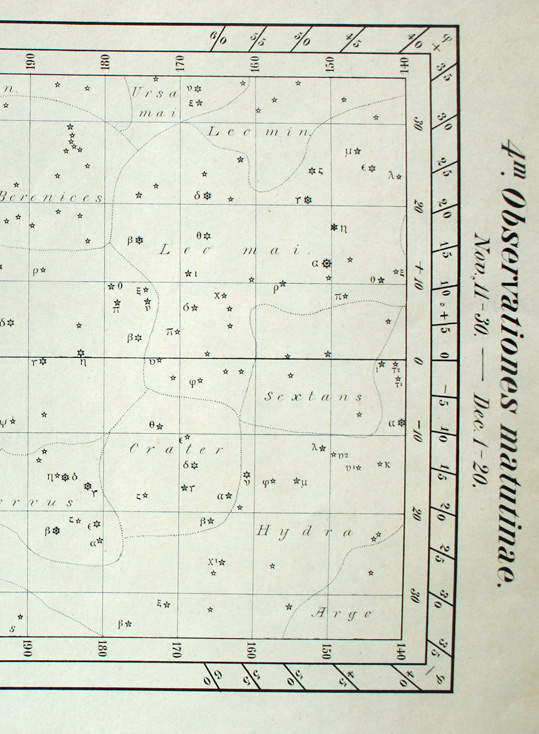 4ᵐ. Observationes matutinae.
Nov. 11-30. — Dec. 1-20.
60 55 50 45 40 φ +
190 180 170 160 150 140
35 30 25 20 15 10 +5 0 -5 10 15 20 25 30 35
30 20 +10 0 -10 20 30
Ursa
mai.
ν
ξ
Leo min.
μ
ε
λ
ζ
Berenices
δ
γ
η
β
θ
Leo mai.
α
ρ
ι
ξ
ο
π
ν
χ
ρ
π
σ
δ
τ
β
γ
η
υ
φ
Sextans
ι
τ²
α
Crater
θ
ε
λ
υ²
υ¹
κ
δ
η
γ
ζ
γ
α
ν
φ
μ
β
ζ
ε
α
β
Hydra
χ¹
ξ
β
Argo
190 180 170 160 150 140
60 55 50 45 40 φ −